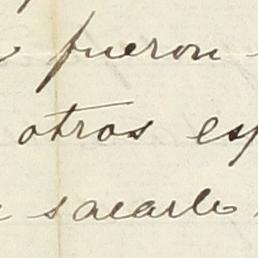 fueron
otros esp
sacarle